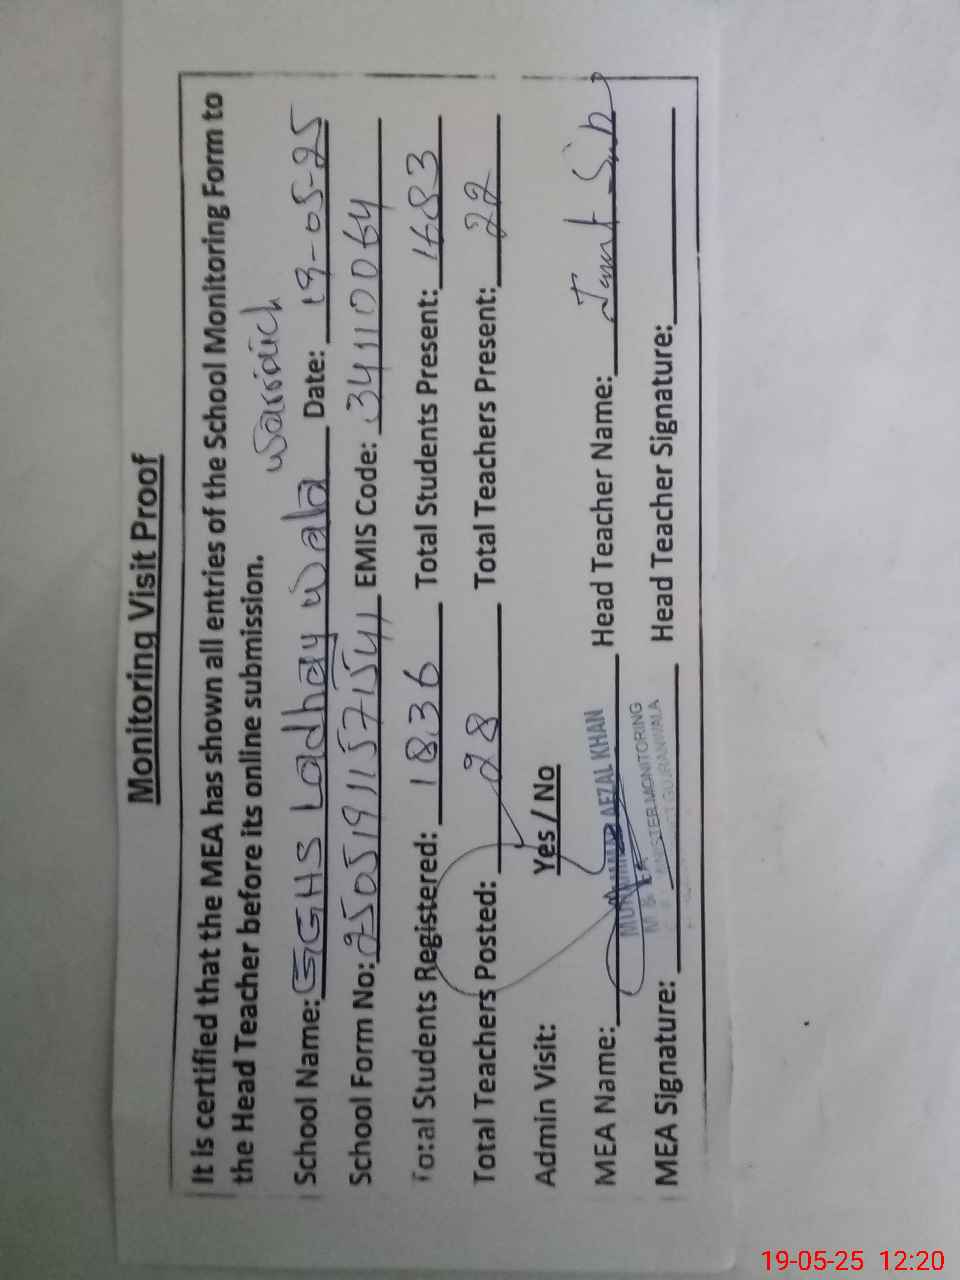 Monitoring Visit Proof
It is certified that the MEA has shown all entries of the School Monitoring Form to
the Head Teacher before its online submission.
School Name: GGHS Ladhay Wala Warraich Date: 19-05-25
School Form No: 2505191157154 EMIS Code: 34110064
Total Students Registered: 1836 Total Students Present: 1683
Total Teachers Posted: 28 Total Teachers Present: 22
Admin Visit: Yes / No
MEA Name: MUHAMMAD AFZAL KHAN Head Teacher Name:
M & EA
MONITORING
GUJRANWALA
MEA Signature: Head Teacher Signature:
19-05-25 12:20